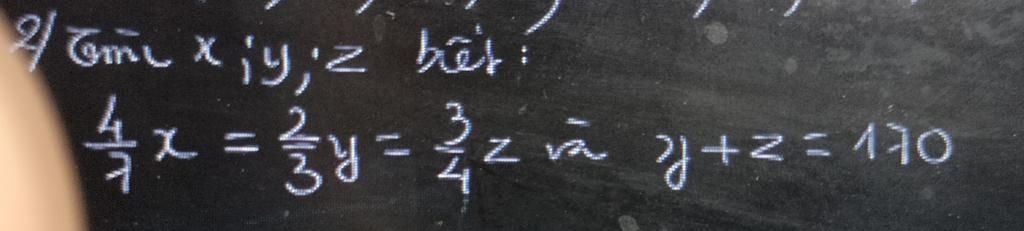 2/ Tìm x; y; z biết:
4/7 x = 2/3 y = 3/4 z và y + z = 170